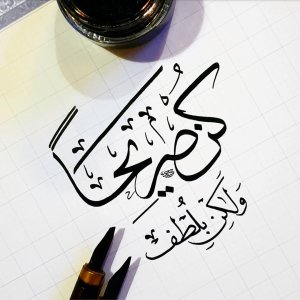 كُن صَريحاً
وَلَكِن بِلُطْفٍ